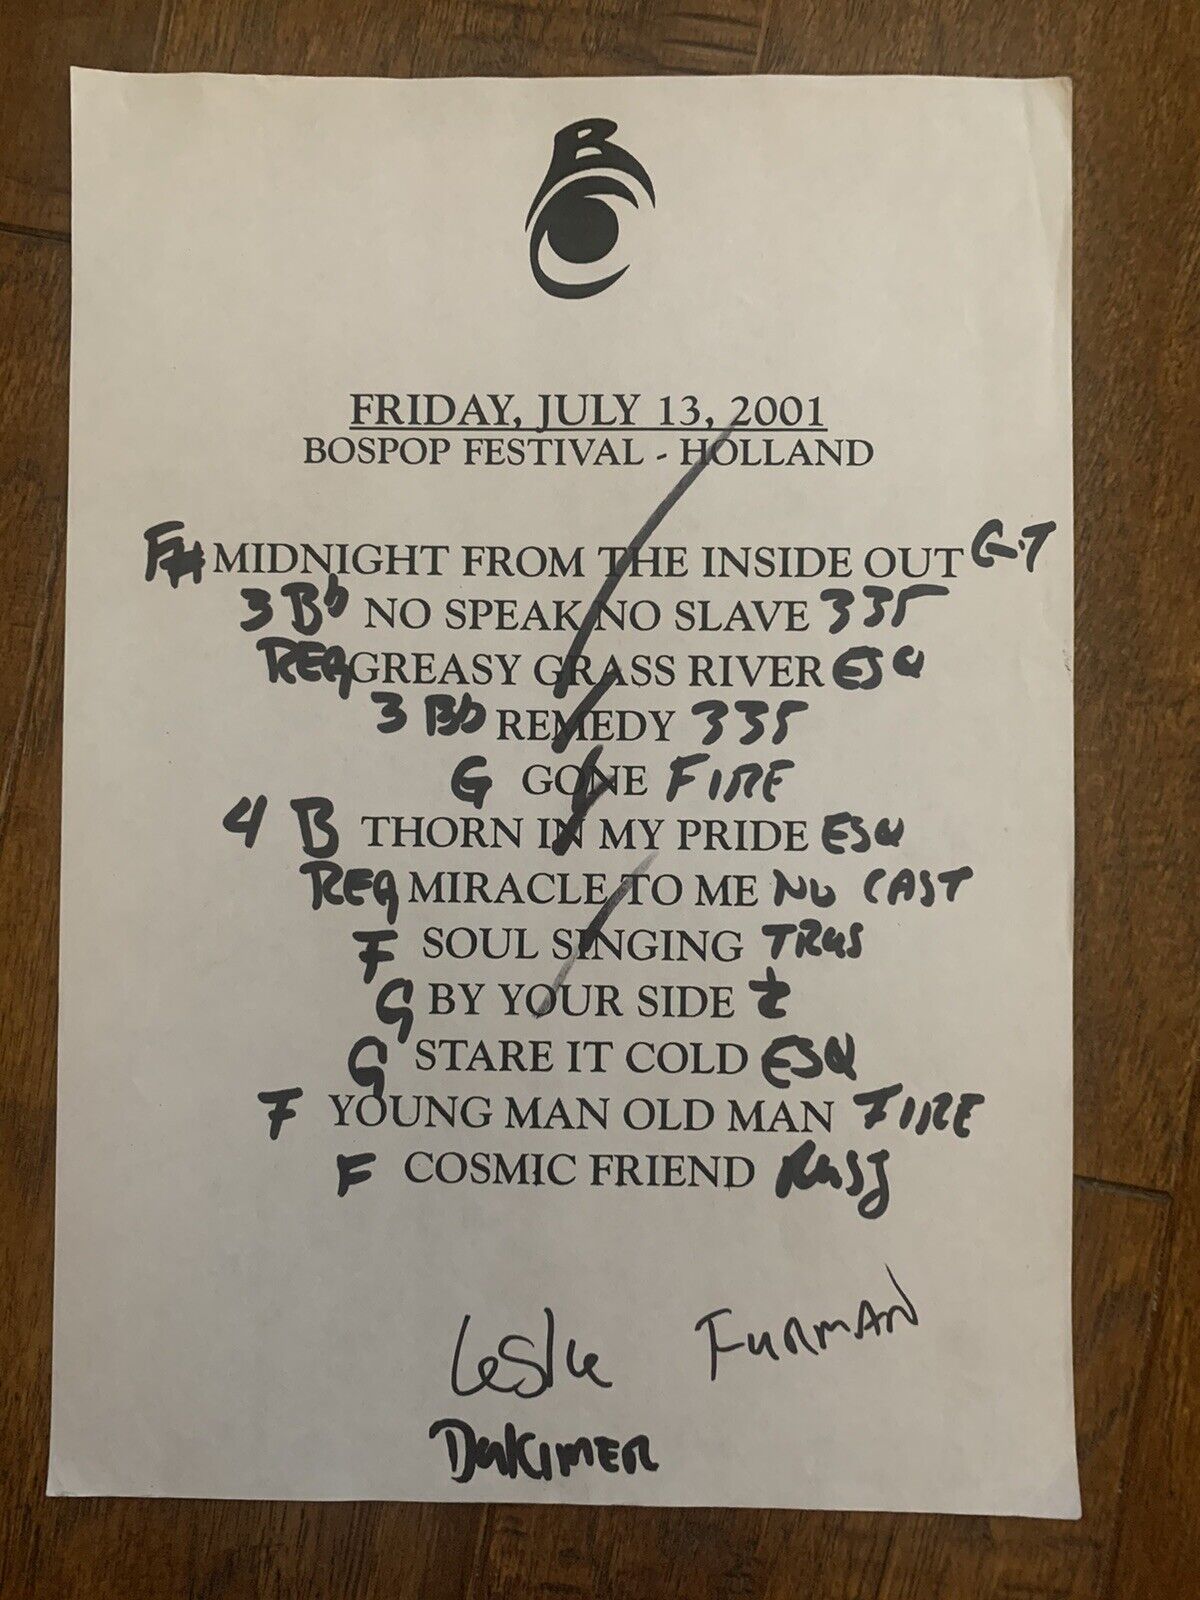 B
C
FRIDAY, JULY 13, 2001
BOSPOP FESTIVAL - HOLLAND
F# MIDNIGHT FROM THE INSIDE OUT G.T
3 Bb NO SPEAK NO SLAVE 335
REG GREASY GRASS RIVER ESQ
3 Bb REMEDY 335
G GONE FIRE
4 B THORN IN MY PRIDE ESQ
REG MIRACLE TO ME NO CAST
F SOUL SINGING TRUS
G BY YOUR SIDE
G STARE IT COLD ESQ
F YOUNG MAN OLD MAN FIRE
F COSMIC FRIEND
Leslie FURMAN